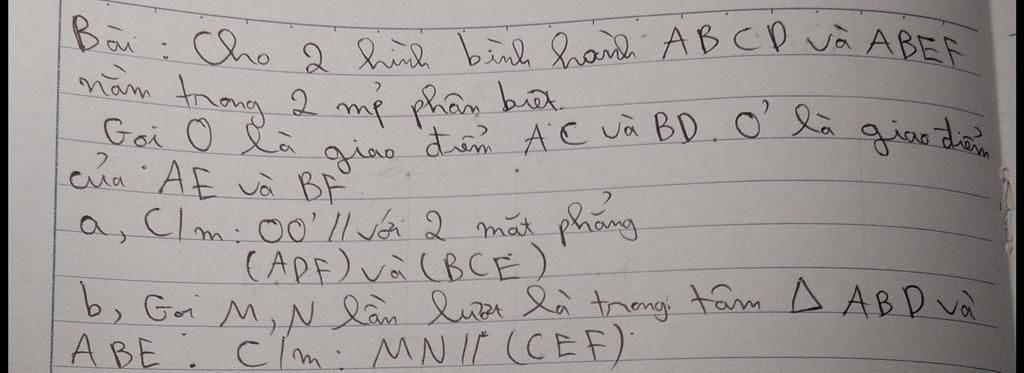 Bài : Cho 2 hình bình hành ABCD và ABEF
nằm trong 2 mp phân biệt.
Gọi O là giao điểm AC và BD. O' là giao điểm
của AE và BF
a, C/m: OO' // với 2 mặt phẳng
(ADF) và (BCE)
b, Gọi M, N lần lượt là trọng tâm Δ ABD và
ABE. C/m: MN // (CEF)